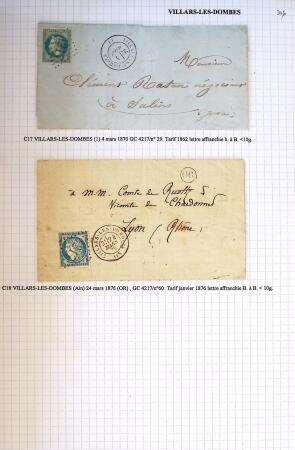 VILLARS-LES-DOMBES
Monsieur
Clément Raton négociant
à Salins
Jura
C17 VILLARS-LES-DOMBES (1) 4 mars 1870 GC 4217/n° 29. Tarif 1862 lettre affranchie b. à B. <10g.
OR
à M.M. Comte de
Vicomte de Chardonnet
Lyon (Rhône)
C18 VILLARS-LES-DOMBES (Ain) 24 mars 1876 (OR) , GC 4217/n°60. Tarif janvier 1876 lettre affranchie B. à B. < 10g.